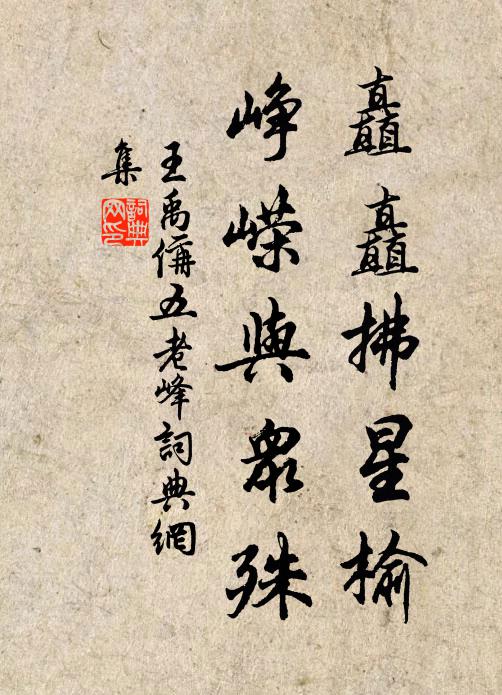 矗矗拂星榆
峥嵘與眾殊
王禹偁五老峰詞典網
集
詞典
网印